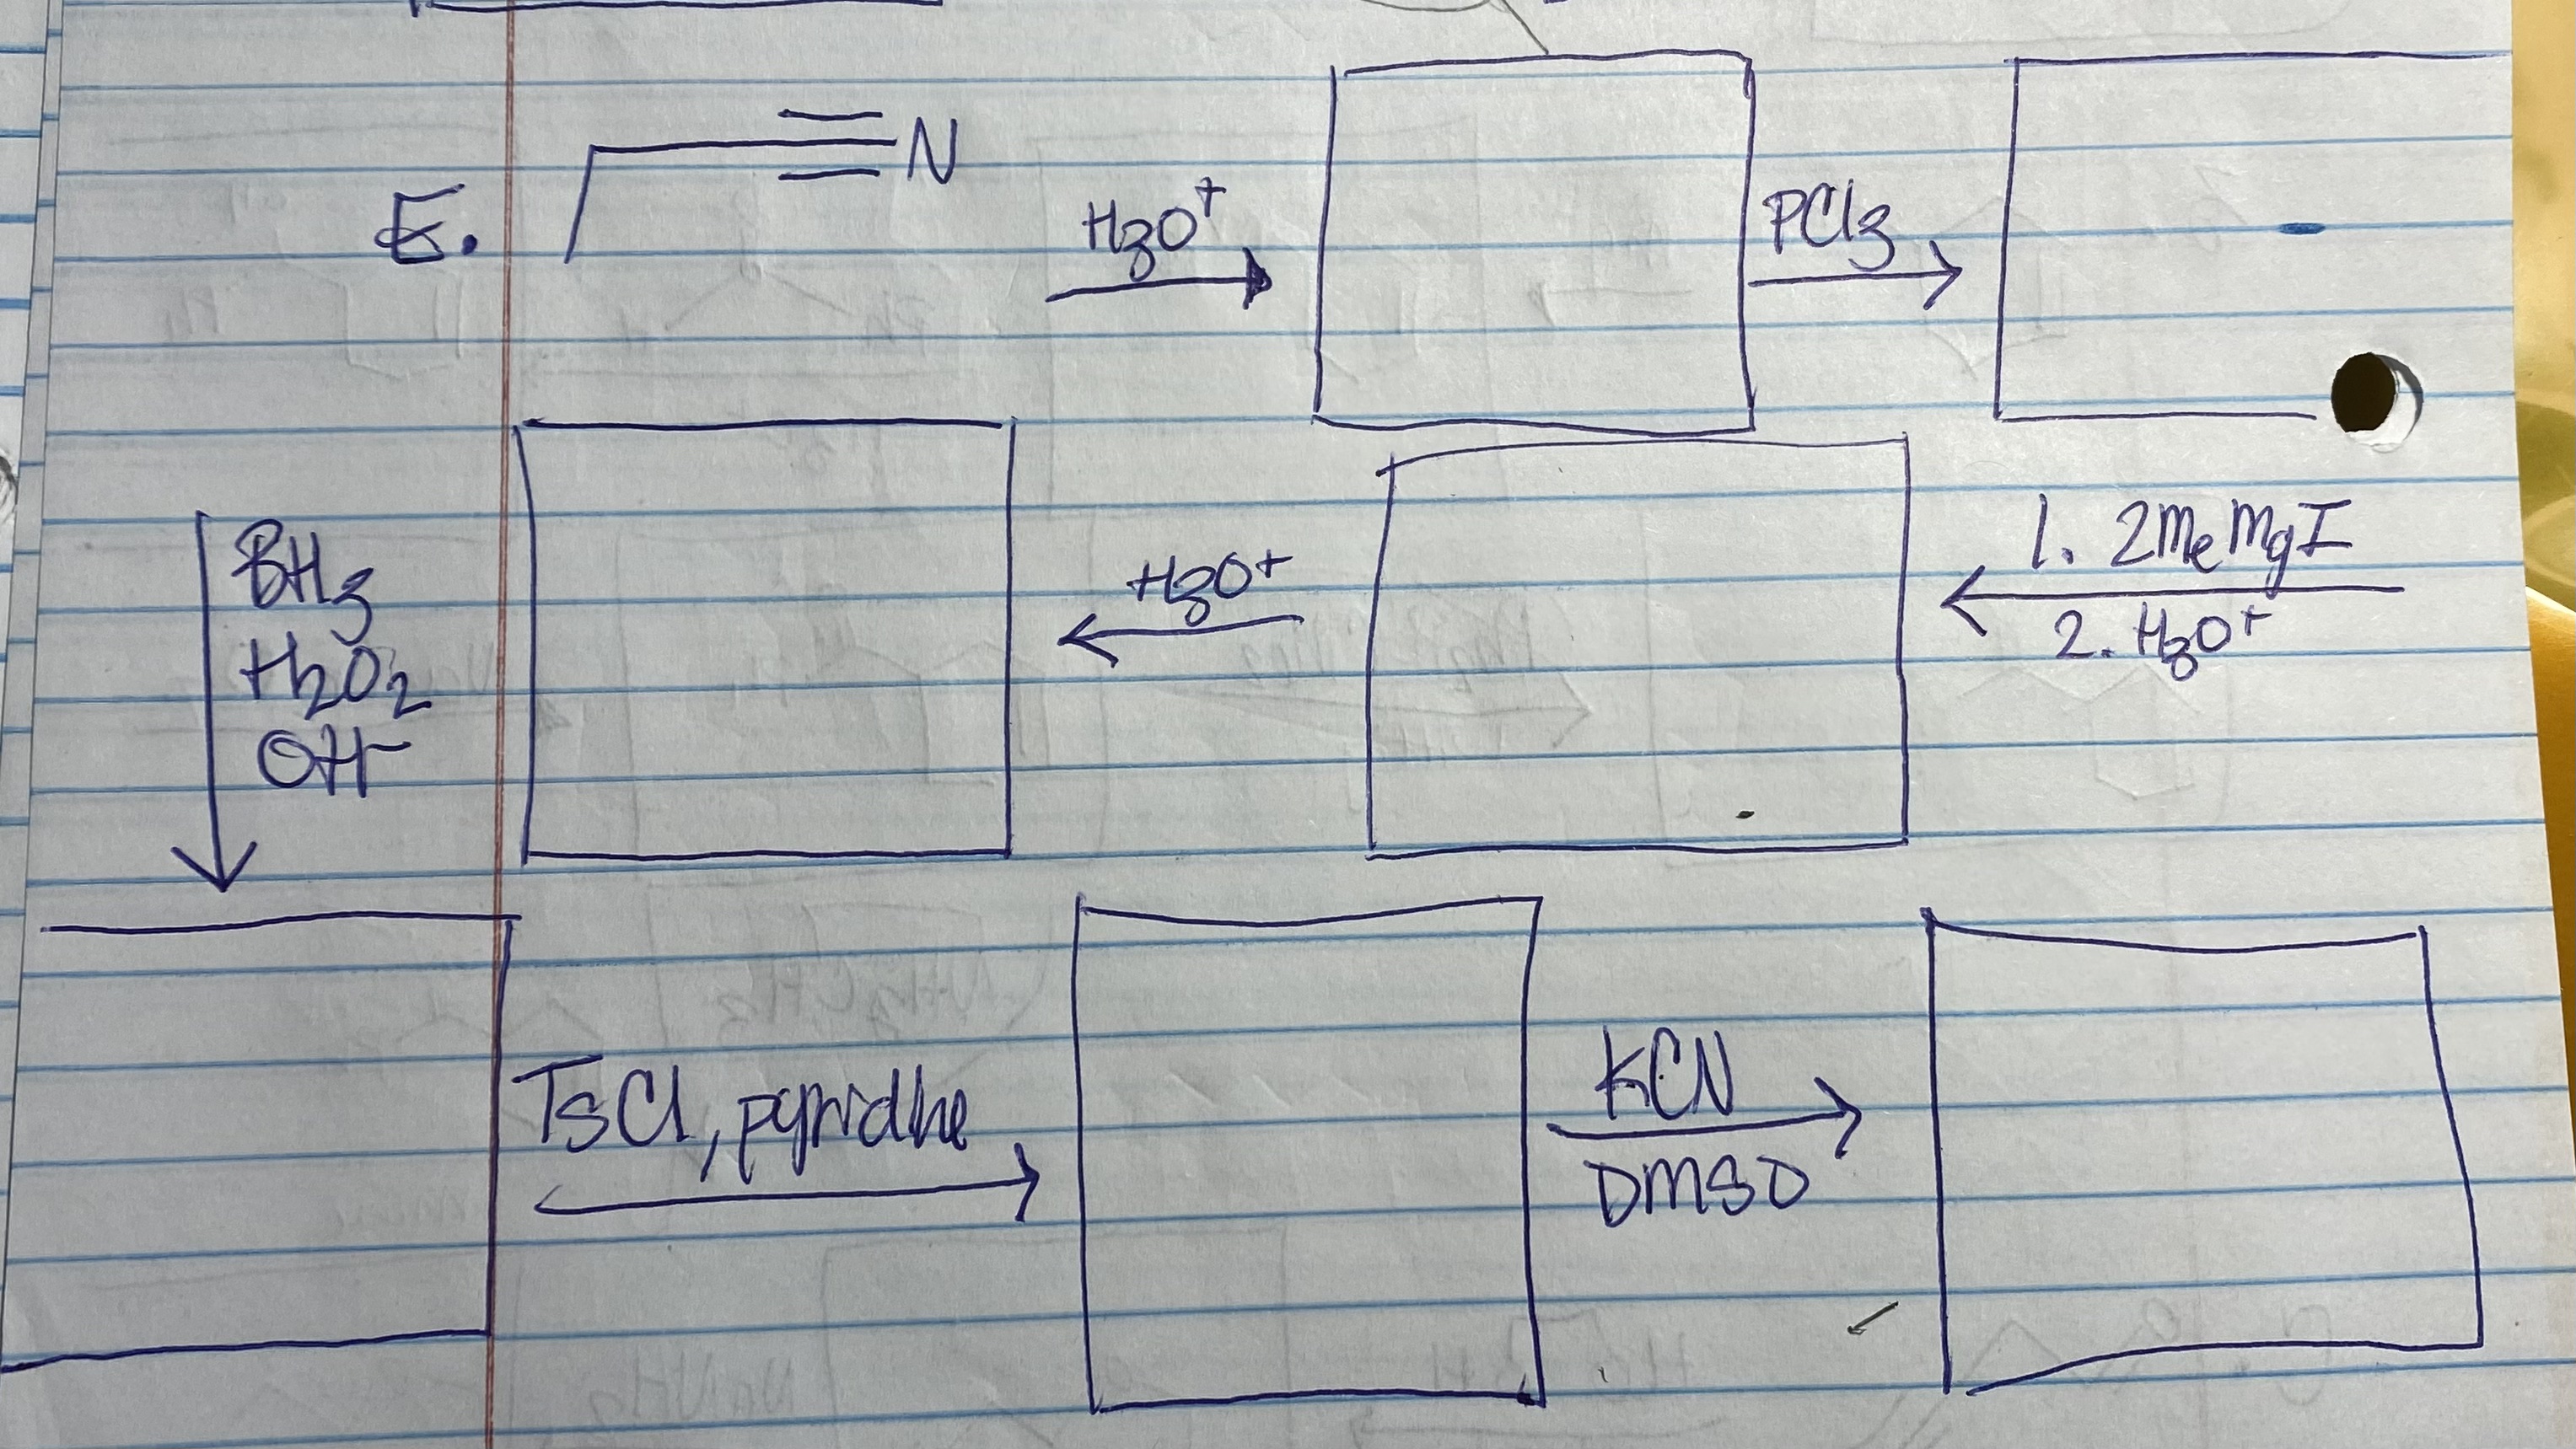 E.
≡N
H3O+
PCl3
1. 2MeMgI
2. H3O+
H3O+
BH3
H2O2
OH-
TsCl, pyridine
KCN
DMSO